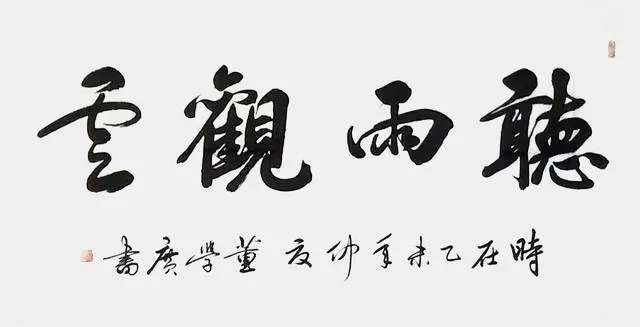 聽雨觀雲
時在乙未年仲夏董學廣書